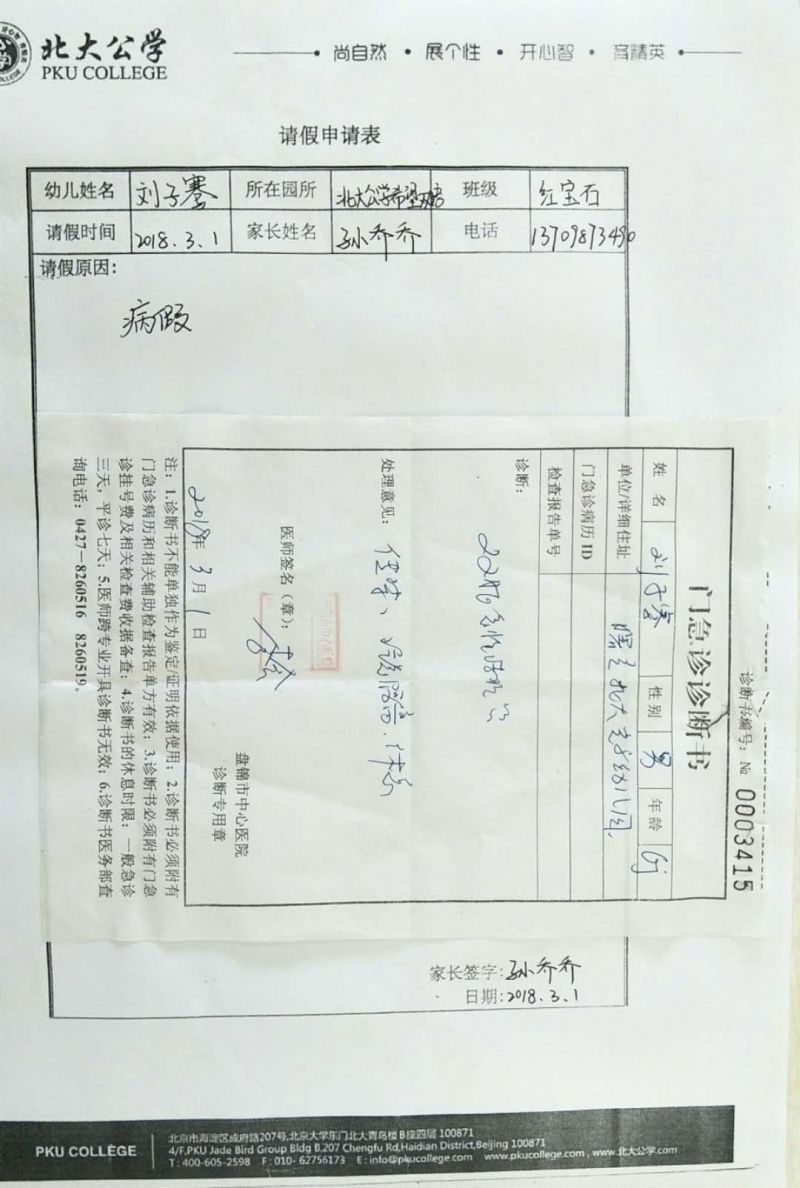 北大公学
PKU COLLEGE
尚自然 • 展个性 • 开心智 • 育精英
请假申请表
幼儿姓名 刘子骞 所在园所 北大公学希望 班级 红宝石
请假时间 2018.3.1 家长姓名 孙乔乔 电话 13709873490
请假原因:
病假
诊断书编号: № 0003415
门急诊诊断书
姓 名 刘子骞 性别 男 年龄 6y
单位/详细住址 北大 幼儿园
门急诊病历 ID
检查报告单号
诊断:
处理意见: 住院、
医师签名(章):
盘锦市中心医院
诊断专用章
2018年 3月 1日
注: 1.诊断书不能单独作为鉴定/证明依据使用; 2.诊断书必须附有
门急诊病历和相关辅助检查报告单方有效; 3.诊断书必须附有门急
诊挂号费及相关检查费收据备查; 4.诊断书的休息时限: 一般急诊
三天, 平诊七天; 5.医师跨专业开具诊断书无效; 6.诊断书医务部查
询电话: 0427-8260516 8260519。
家长签字:孙乔乔
日期:2018.3.1
PKU COLLEGE
北京市海淀区成府路207号,北京大学东门北大青鸟楼B座四层 100871
4/F,PKU Jade Bird Group Bldg B,207 Chengfu Rd,Haidian District,Beijing 100871
T : 400-605-2598 F : 010- 62756173 E : info@pkucollege.com www.pkucollege.com , www.北大公学.com